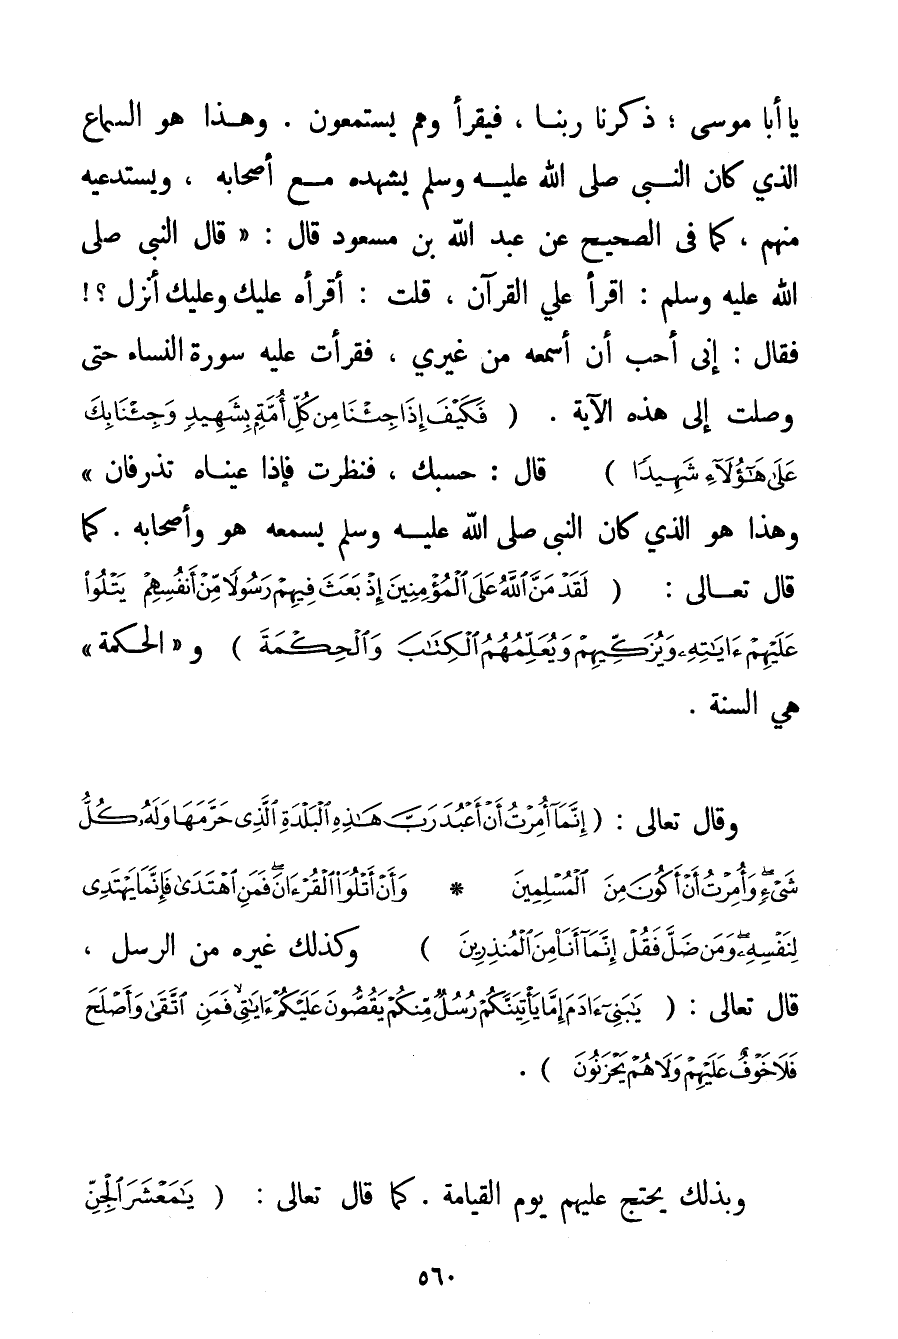 يا أبا موسى ؛ ذكرنا ربنا ، فيقرأ وهم يستمعون . وهذا هو السماع
الذي كان النبي صلى الله عليه وسلم يشهده مع أصحابه ، ويستدعيه
منهم ، كما فى الصحيح عن عبد الله بن مسعود قال : « قال النبي صلى
الله عليه وسلم : اقرأ علي القرآن ، قلت : أقرأه عليك وعليك أنزل ؟!
فقال : إنى أحب أن أسمعه من غيري ، فقرأت عليه سورة النساء حتى
وصلت إلى هذه الآية . ( فَكَيْفَ إِذَا جِئْنَا مِن كُلِّ أُمَّةٍ بِشَهِيدٍ وَجِئْنَا بِكَ
عَلَىٰ هَٰٓؤُلَآءِ شَهِيدًا ) قال : حسبك ، فنظرت فإذا عيناه تذرفان »
وهذا هو الذي كان النبي صلى الله عليه وسلم يسمعه هو وأصحابه . كما
قال تعالى : ( لَقَدْ مَنَّ ٱللَّهُ عَلَى ٱلْمُؤْمِنِينَ إِذْ بَعَثَ فِيهِمْ رَسُولًا مِّنْ أَنفُسِهِمْ يَتْلُوا۟
عَلَيْهِمْ ءَايَٰتِهِۦ وَيُزَكِّيهِمْ وَيُعَلِّمُهُمُ ٱلْكِتَٰبَ وَٱلْحِكْمَةَ ) و « الحكمة »
هي السنة .
وقال تعالى : ( إِنَّمَآ أُمِرْتُ أَنْ أَعْبُدَ رَبَّ هَٰذِهِ ٱلْبَلْدَةِ ٱلَّذِى حَرَّمَهَا وَلَهُۥ كُلُّ
شَىْءٍ ۖ وَأُمِرْتُ أَنْ أَكُونَ مِنَ ٱلْمُسْلِمِينَ * وَأَنْ أَتْلُوَا۟ ٱلْقُرْءَانَ ۖ فَمَنِ ٱهْتَدَىٰ فَإِنَّمَا يَهْتَدِى
لِنَفْسِهِۦ ۖ وَمَن ضَلَّ فَقُلْ إِنَّمَآ أَنَا۠ مِنَ ٱلْمُنذِرِينَ ) وكذلك غيره من الرسل ،
قال تعالى : ( يَٰبَنِىٓ ءَادَمَ إِمَّا يَأْتِيَنَّكُمْ رُسُلٌ مِّنكُمْ يَقُصُّونَ عَلَيْكُمْ ءَايَٰتِى ۙ فَمَنِ ٱتَّقَىٰ وَأَصْلَحَ
فَلَا خَوْفٌ عَلَيْهِمْ وَلَا هُمْ يَحْزَنُونَ ) .
وبذلك يحتج عليهم يوم القيامة . كما قال تعالى : ( يَٰمَعْشَرَ ٱلْجِنِّ
٥٦٠